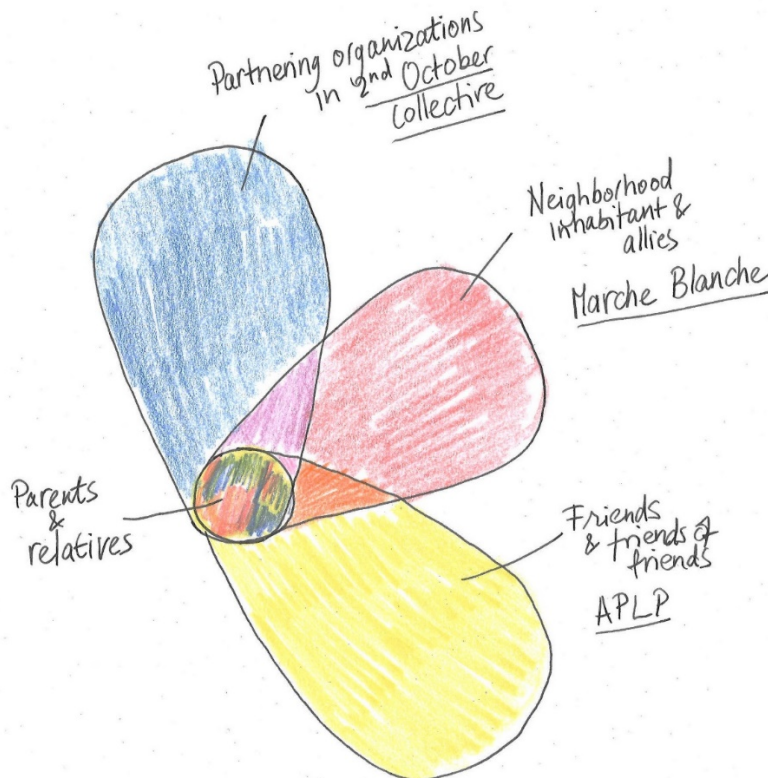 Partnering organizations
in 2nd October
Collective
Neighborhood
inhabitant &
allies
Marche Blanche
Parents
&
relatives
Friends
& friends of
friends
APLP